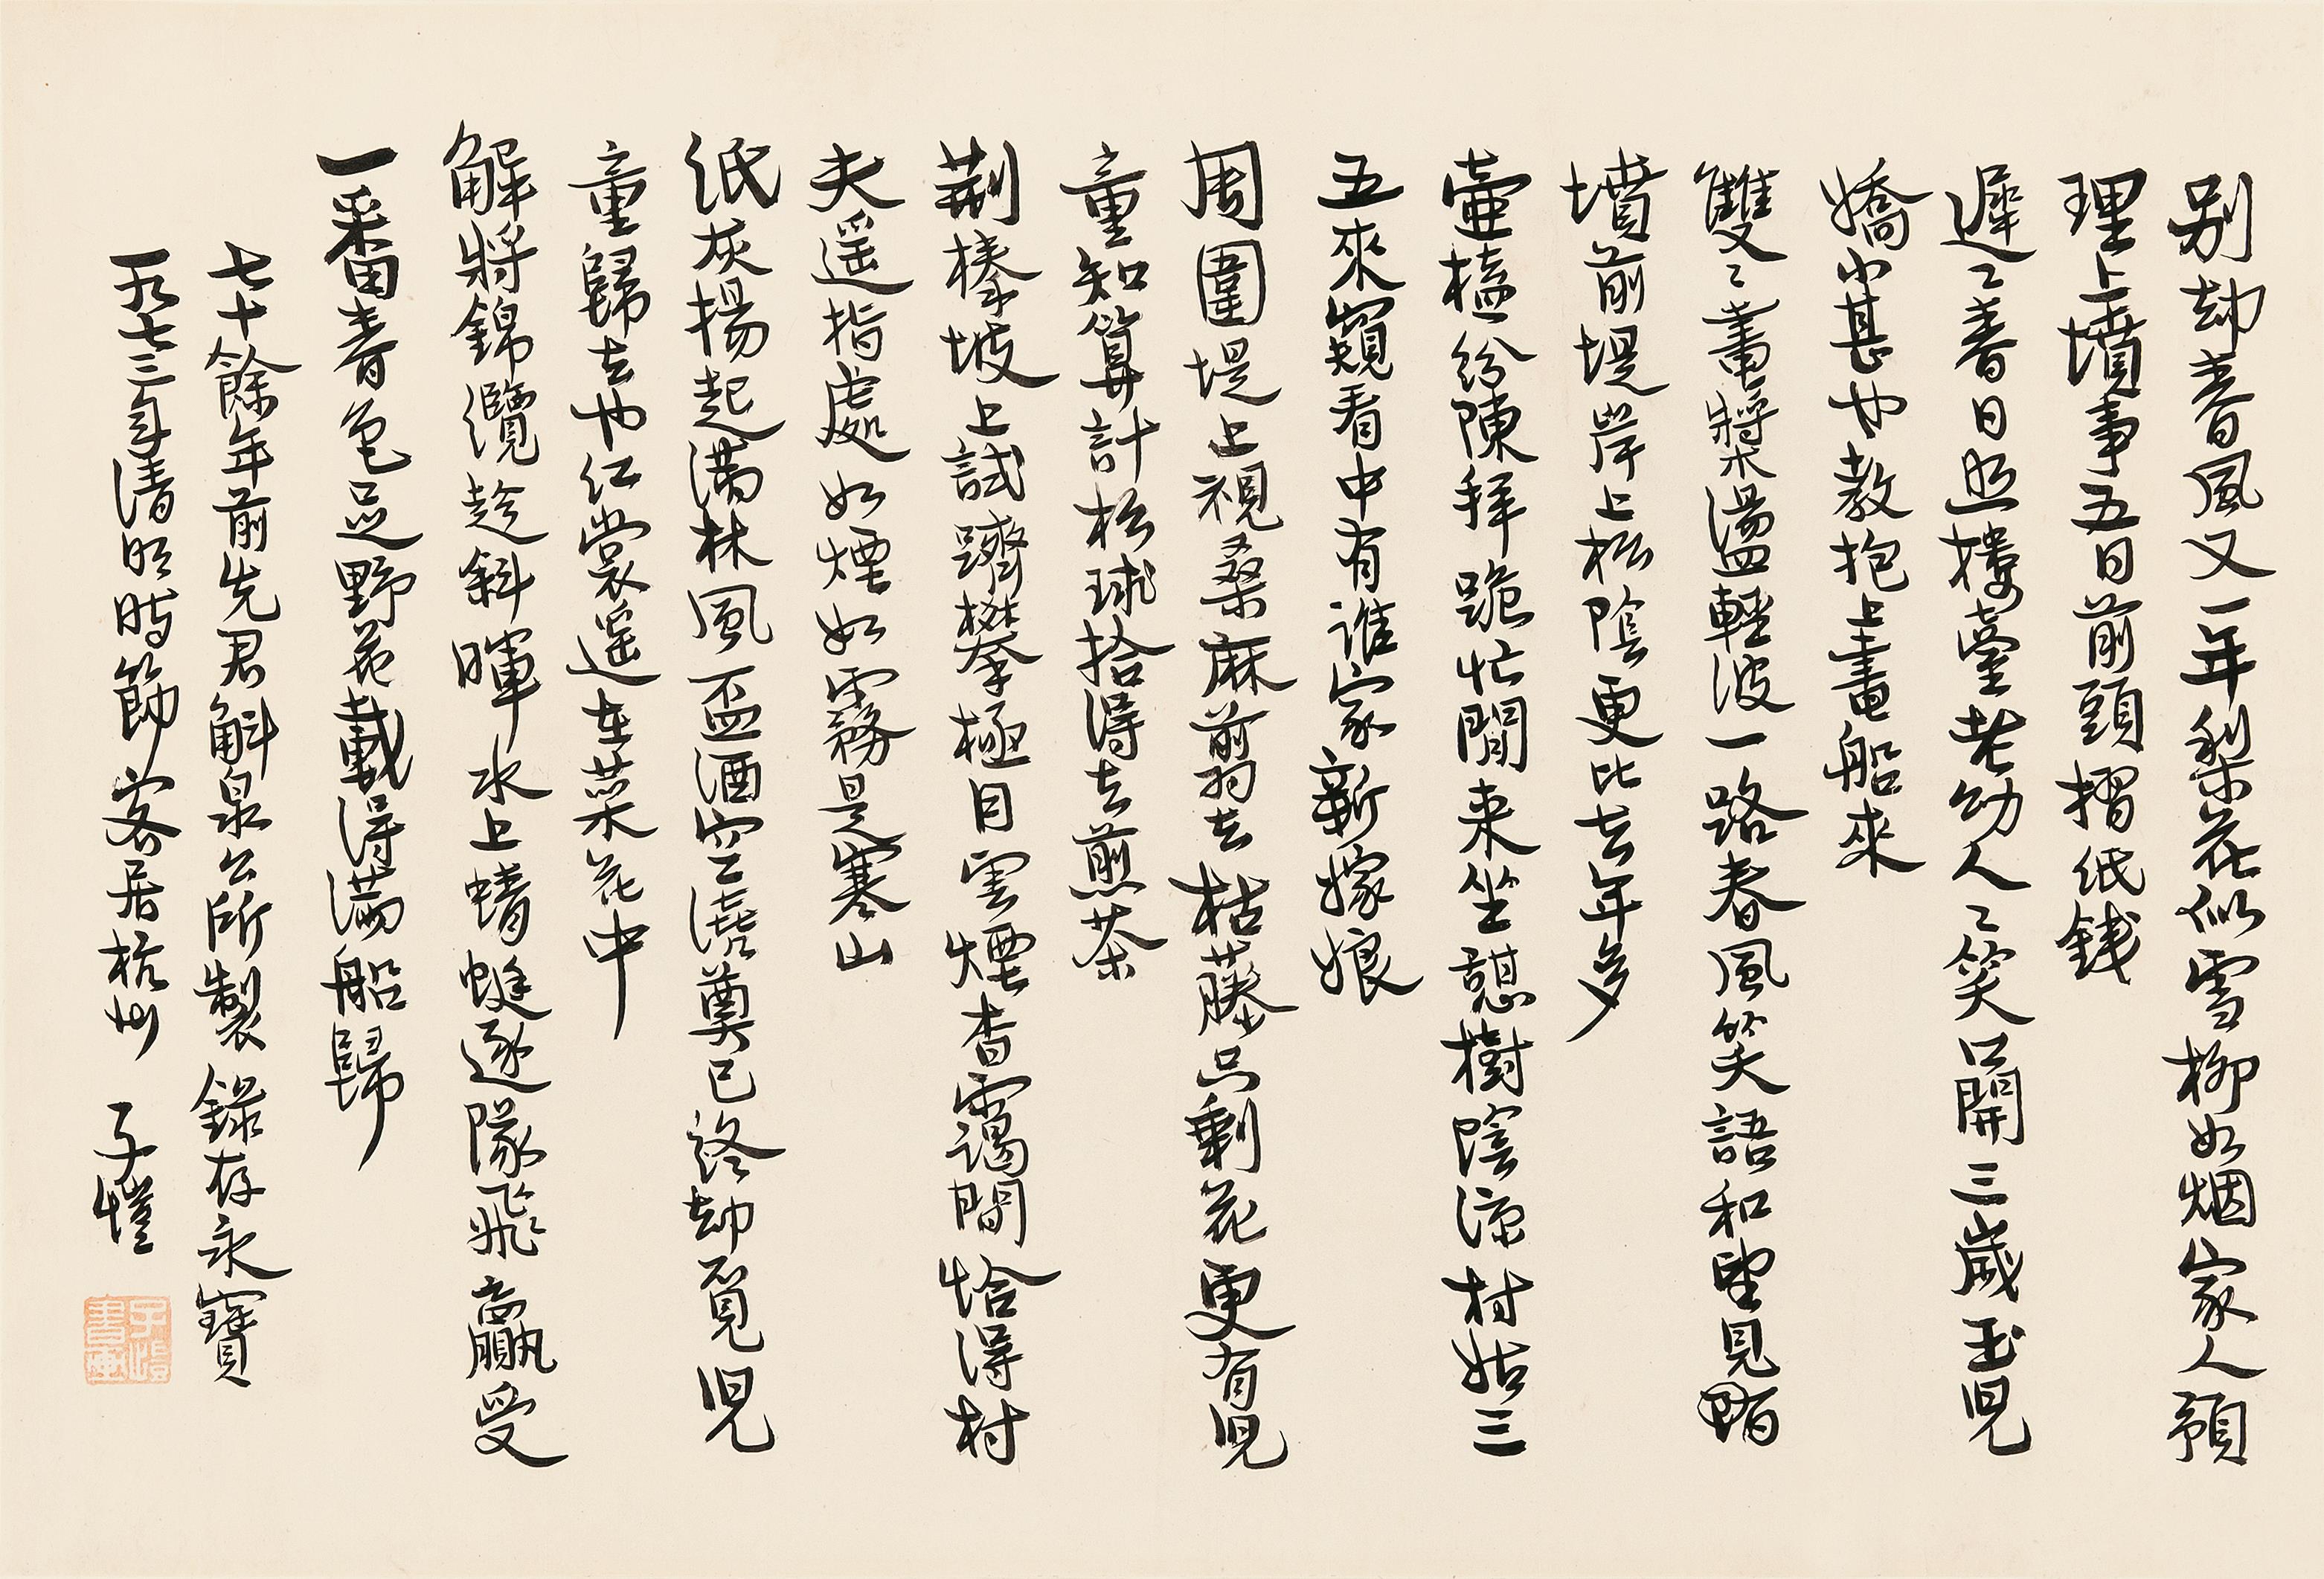 別却春風又一年梨花似雪柳如烟家人預
理上墳事五日前頭摺紙錢
遲々春日照樓臺老幼人々笑口開三歲玉兒
嬌小甚也教抱上畫船來
雙々畫槳盪輕波一路春風笑語和望見
墳前堤岸上松陰更比去年多
壺榼紛陳拜跪忙閒来坐憩樹陰涼村姑三
五來窺看中有誰家新嫁娘
周圍堤上視桑麻剪去枯藤只剩花更有兒
童知算計松球拾得去煎茶
荆榛坡上試躋攀極目雲煙杳靄間恰得村
夫遥指處如煙如霧是寒山
紙灰揚起满林風盃酒空澆奠已終却覓兒
童歸去也红裳遥在菜花中
解將錦纜趁斜暉水上蜻蜓逐隊飛贏受
一番春色足野花載得满船歸
七十餘年前先君斛泉公所製録存永寶
一九七三年清明時節客居杭州 子愷
子愷書畫